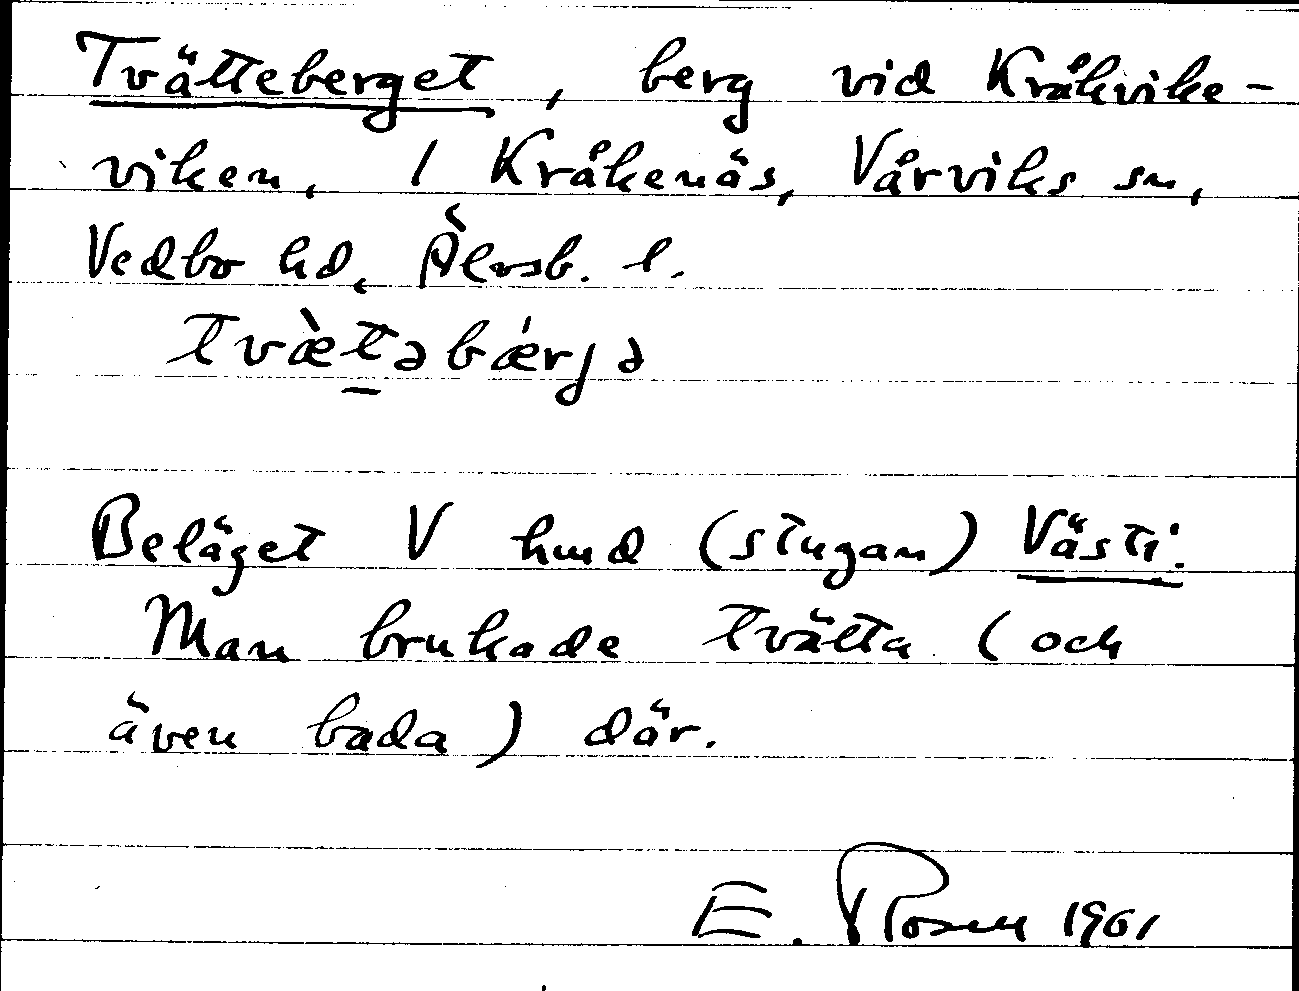 Tvätteberget, berg vid Kråkvike-
viken, 1 Kråkenäs, Vårviks sn,
Vedbo hd, Älvsb. l.
tvæ̀t̠əbǽrjə
Beläget V hmd (stugan) Västi.
Man brukade tvätta (och
även bada) där.
E. Rosen 1961